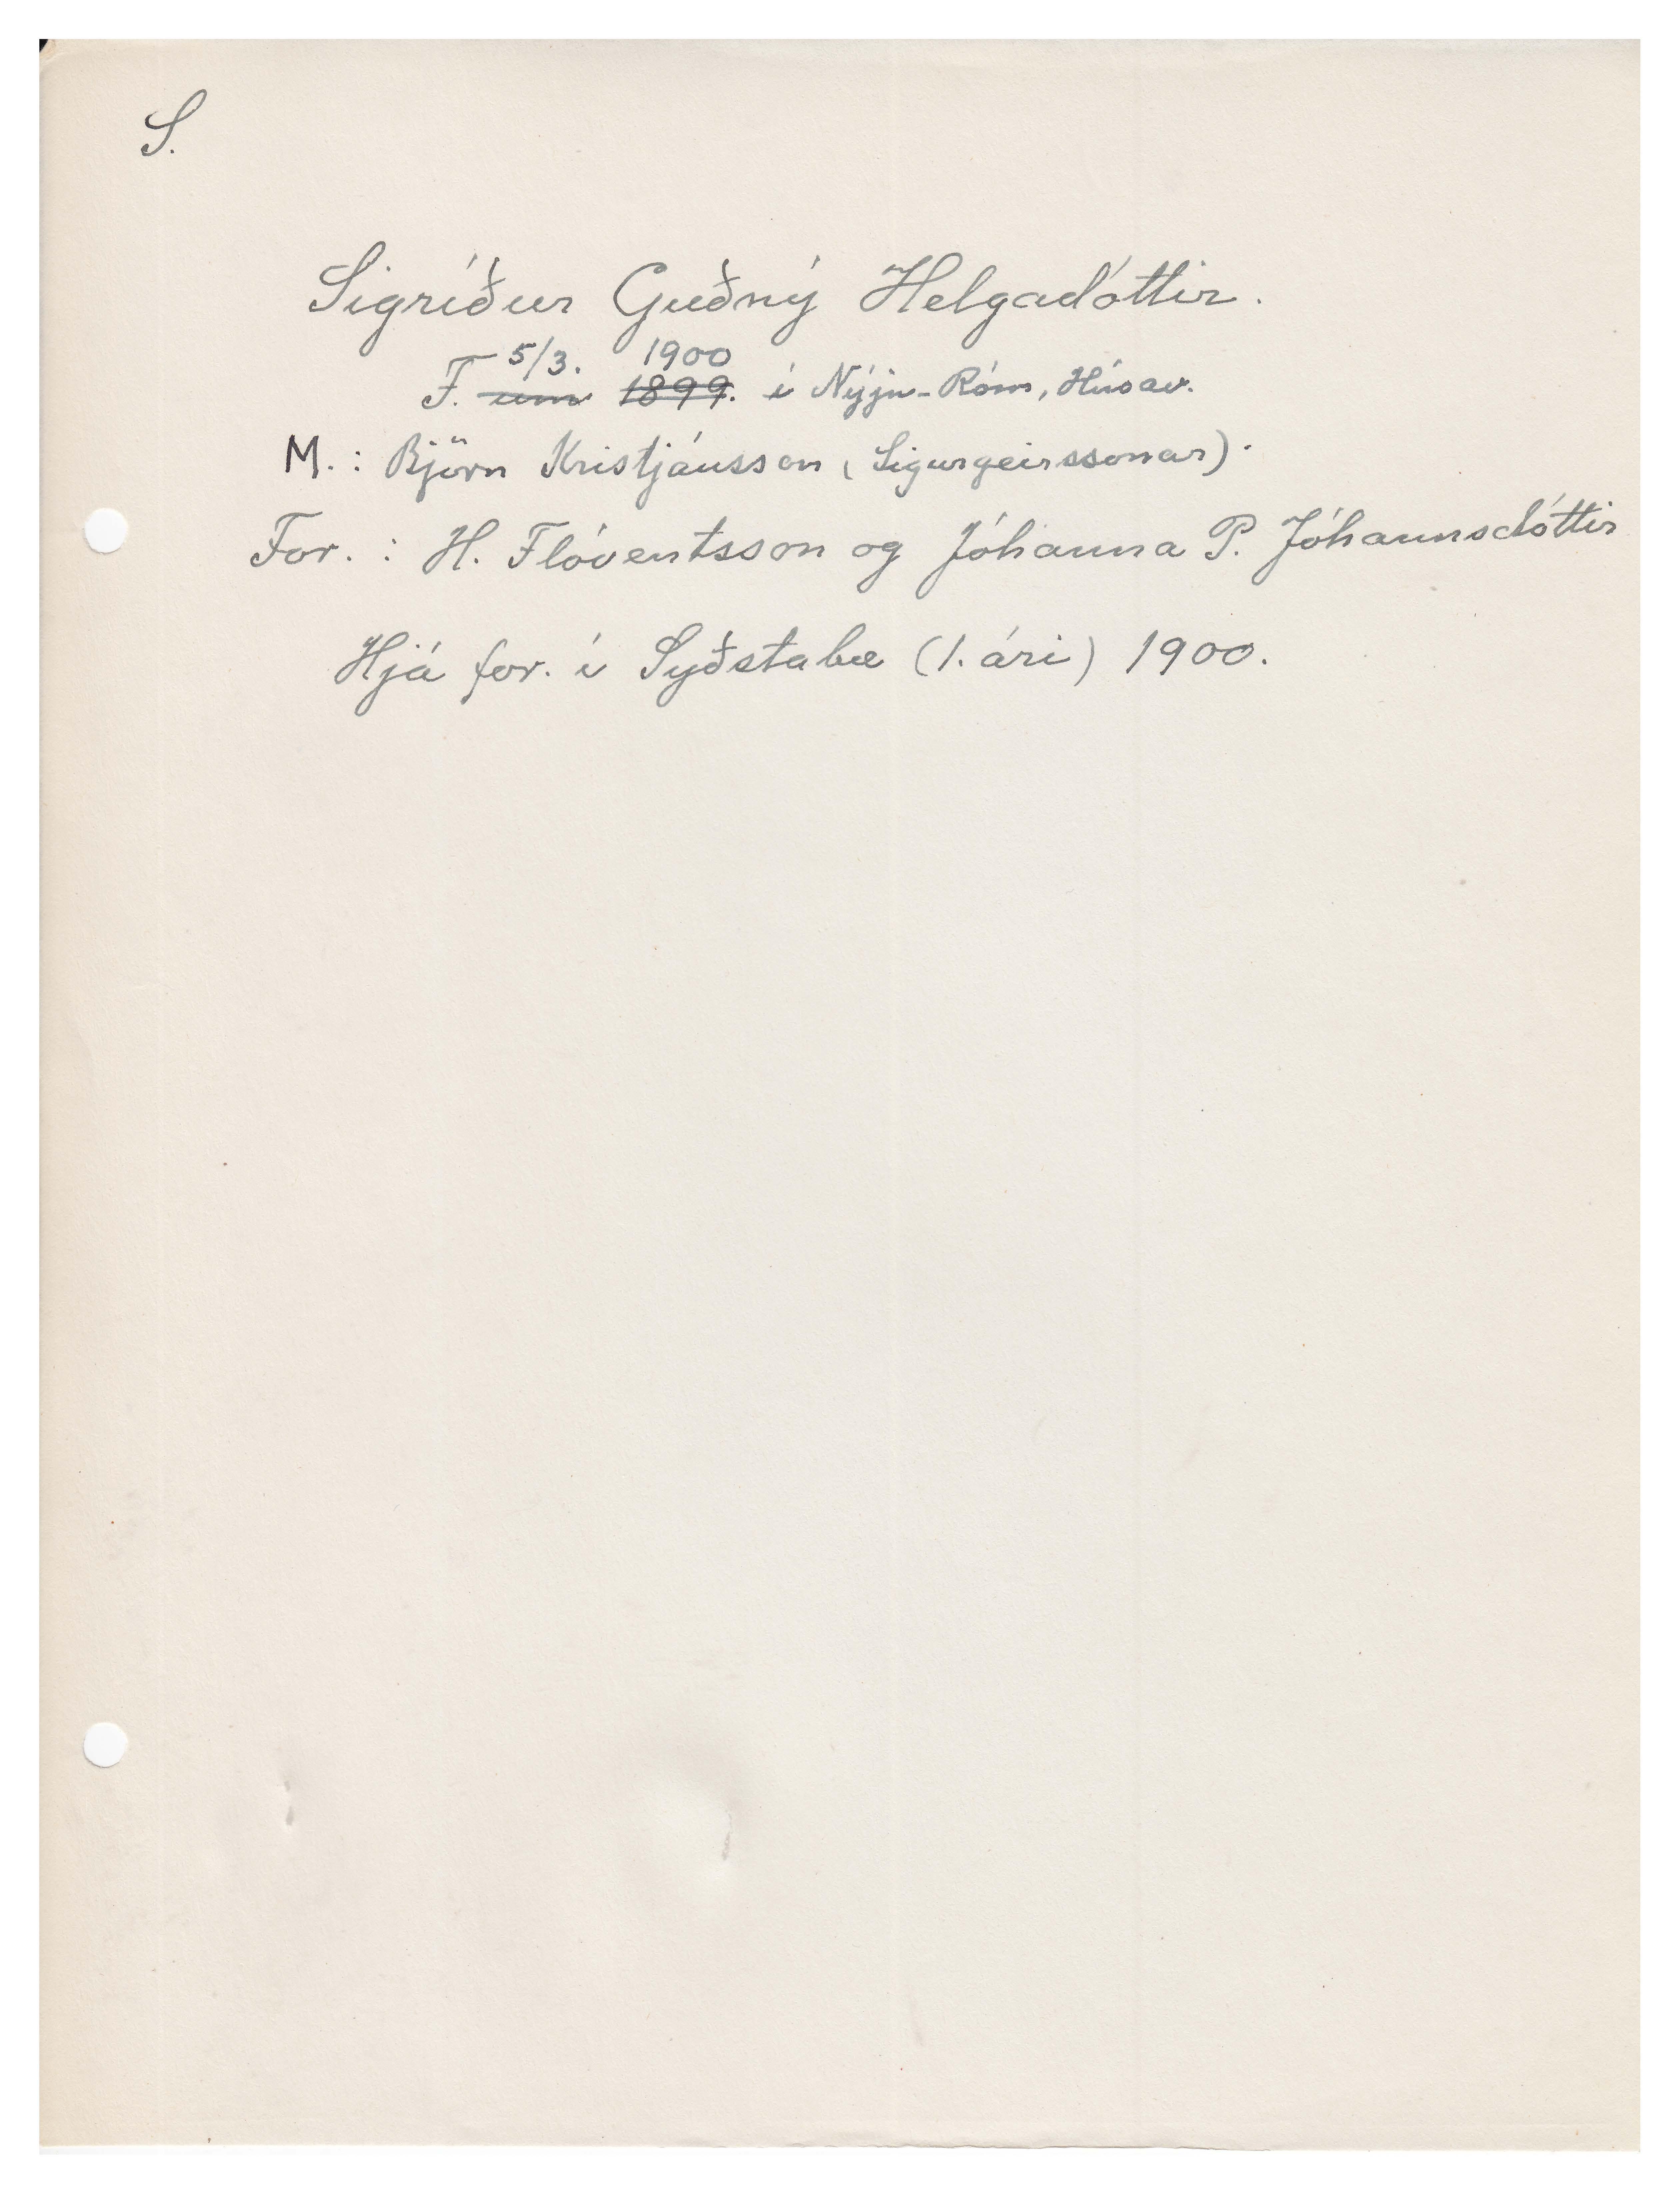 S.
Sigríður Guðný Helgadóttir.
5/3. 1900
F. um 1899. í Nýju-Róm, Húsav.
M.: Björn Kristjánsson (Sigurgeirssonar).
For.: H. Flóventsson og Jóhanna P. Jóhannsdóttir
Hjá for. í Syðstabæ (1. ári) 1900.